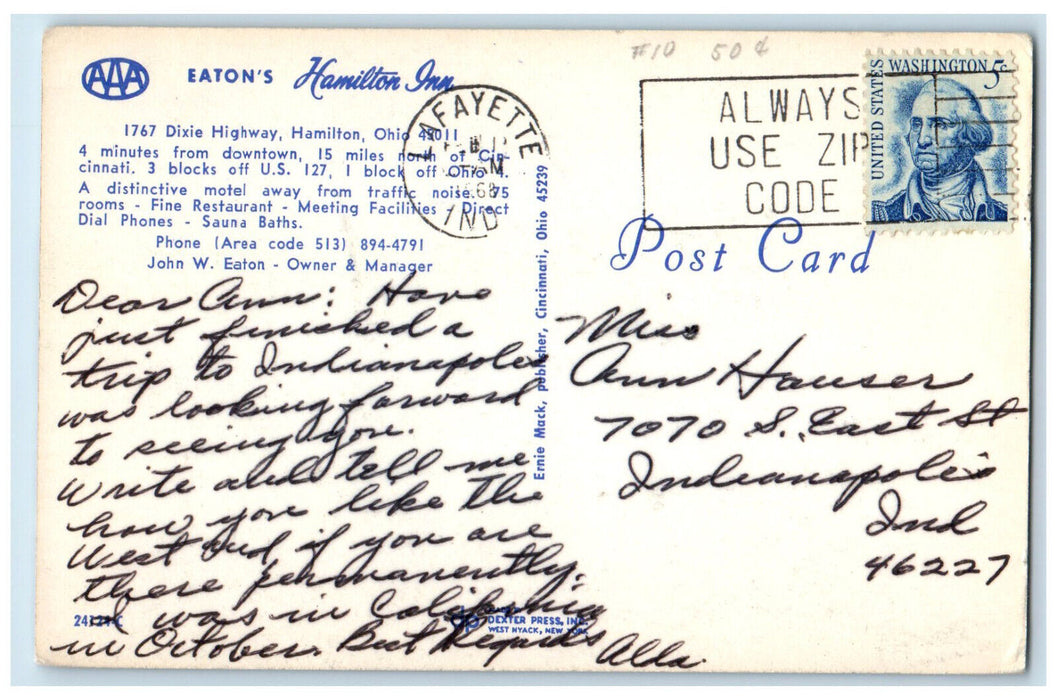 #10 50¢
AAA EATON'S Hamilton Inn
1767 Dixie Highway, Hamilton, Ohio 45011
4 minutes from downtown, 15 miles north of Cin-
cinnati. 3 blocks off U.S. 127, 1 block off Ohio 4.
A distinctive motel away from traffic noise. 75
rooms - Fine Restaurant - Meeting Facilities - Direct
Dial Phones - Sauna Baths.
Phone (Area code 513) 894-4791
John W. Eaton - Owner & Manager
LAFAYETTE
AM
1968
IND
ALWAYS
USE ZIP
CODE
UNITED STATES
WASHINGTON 5c
Post Card
Ernie Mack, publisher, Cincinnati, Ohio 45239
Dear Ann: Have
just finished a
trip to Indianapolis
was looking forward
to seeing you.
Write and tell me
how you like the
West and if you are
there permanently.
I was in California
in October. Best Regards
Alda.
Miss
Ann Hauser
7070 S. East St
Indianapolis
Ind
46227
DEXTER PRESS, INC.
WEST NYACK, NEW YORK